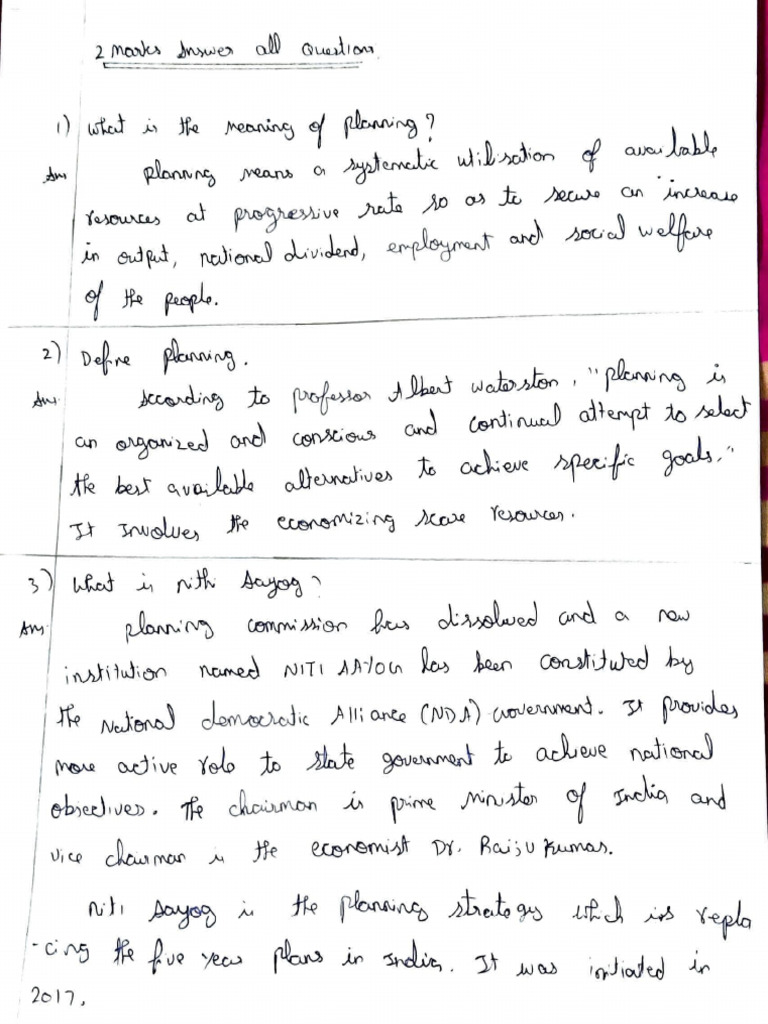 2 Marks Answer all Questions
1) What is the meaning of planning?
Ans planning means a systematic utilisation of available
resources at progressive rate so as to secure an increase
in output, national dividend, employment and social welfare
of the people.
2) Define planning.
Ans. According to professor Albert waterston, "planning is
an organized and conscious and continual attempt to select
the best available alternatives to achieve specific goals."
It Involves the economizing scare resources.
3) What is nithi Aayog?
Ans. planning commission has dissolved and a new
institution named NITI AAYOG has been constituted by
the National democratic Alliance (NDA) Government. It provides
more active role to state government to achieve national
objectives. The chairman is prime minister of India and
vice chairman is the economist Dr. Rajiv Kumar.
Niti Aayog is the planning strategy which is repla
-cing the five year plans in India. It was initiated in
2017.